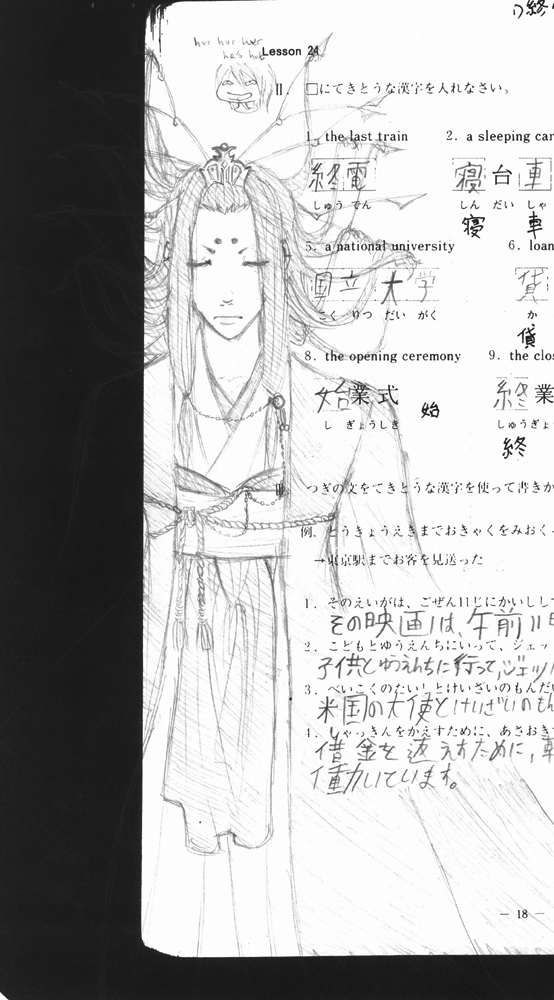 り終
hur hur hur
he's hot
Lesson 24
II. □にてきとうな漢字を入れなさい。
1. the last train
2. a sleeping car
終電
寝台車
しゅう でん
しん だい しゃ
寝 車
5. a national university
6. loan
国立大学
貸
こく りつ だい がく
か
貸
8. the opening ceremony
9. the clos
始業式
終業
し ぎょうしき
しゅうぎょ
始
終
つぎの文をてきとうな漢字を使って書きか
例. とうきょうえきまでおきゃくをみおく
→東京駅までお客を見送った
1. そのえいがは、ごぜん11じにかいしして
その映画は、午前11時
2. こどもとゆうえんちにいって、ジェッ
子供とゆうえんちに行って、ジェッ
3. べいこくのたいしとけいざいのもんだい
米国の大使とけいざいのもん
4. しゃっきんをかえすために、あさおき
借金を返えすために、朝
働いています。
— 18 —